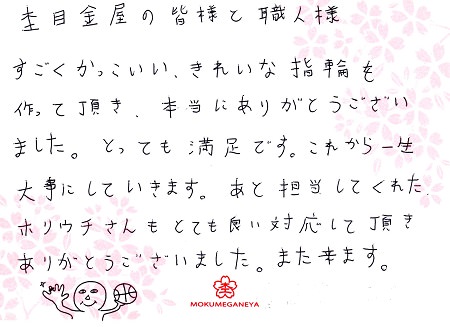 杢目金屋の皆様と職人様
すごくかっこいい、きれいな指輪を
作って頂き、本当にありがとうござい
ました。とっても満足です。これから一生
大事にしていきます。あと担当してくれた、
ホリウチさんもとても良い対応して頂き
ありがとうございました。また来ます。
MOKUMEGANEYA